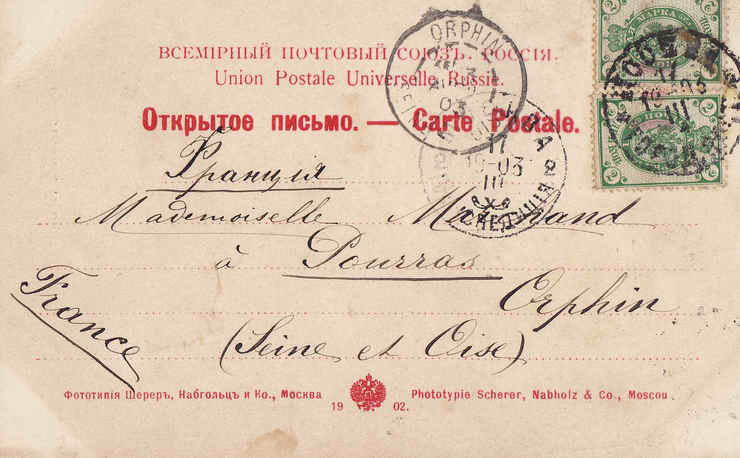 ВСЕМІРНЫЙ ПОЧТОВЫЙ СОЮЗЪ. РОССІЯ.
Union Postale Universelle. Russie.
Открытое письмо. — Carte Postale.
ORPHIN
03
МАРКА
17
1903
III
Франція
Mademoiselle
à Pourras
Orphin
France
(Seine et Oise)
Фототипія Шереръ, Набгольцъ и Ко., Москва
Phototypie Scherer, Nabholz & Co., Moscou.
1902.